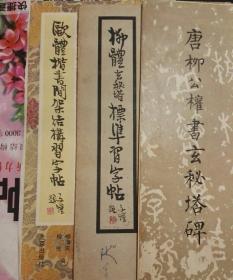 唐柳公權書玄秘塔碑
柳體玄秘塔標準習字帖
歐體楷書間架結構習字帖
快捷
3000